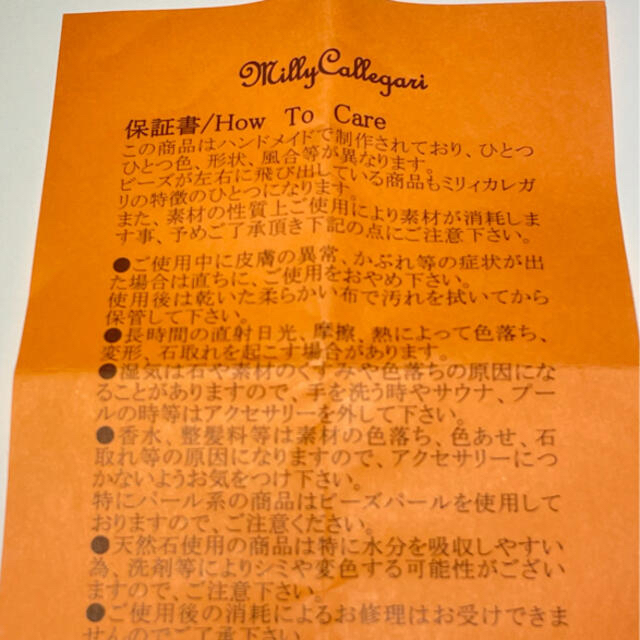 Milly Callegari
保証書/How To Care
この商品はハンドメイドで制作されており、ひとつ
ひとつ色、形状、風合等が異なります。
ビーズが左右に飛び出している商品もミリィカレガ
リの特徴のひとつになります。
また、素材の性質上ご使用により素材が消耗しま
す事、予めご了承頂き下記の点にご注意下さい。
●ご使用中に皮膚の異常、かぶれ等の症状が出
た場合は直ちに、ご使用をおやめ下さい。
使用後は乾いた柔らかい布で汚れを拭いてから
保管して下さい。
●長時間の直射日光、摩擦、熱によって色落ち、
変形、石取れを起こす場合があります。
●湿気は石や素材のくすみや色落ちの原因にな
ることがありますので、手を洗う時やサウナ、プー
ルの時等はアクセサリーを外して下さい。
●香水、整髪料等は素材の色落ち、色あせ、石
取れ等の原因になりますので、アクセサリーにつ
かないようお気をつけ下さい。
特にパール系の商品はビーズパールを使用して
おりますので、ご注意ください。
●天然石使用の商品は特に水分を吸収しやすい
為、洗剤等によりシミや変色する可能性がござい
ますので、ご注意下さい。
●ご使用後の消耗によるお修理はお受けできま
せんのでご了承下さい。